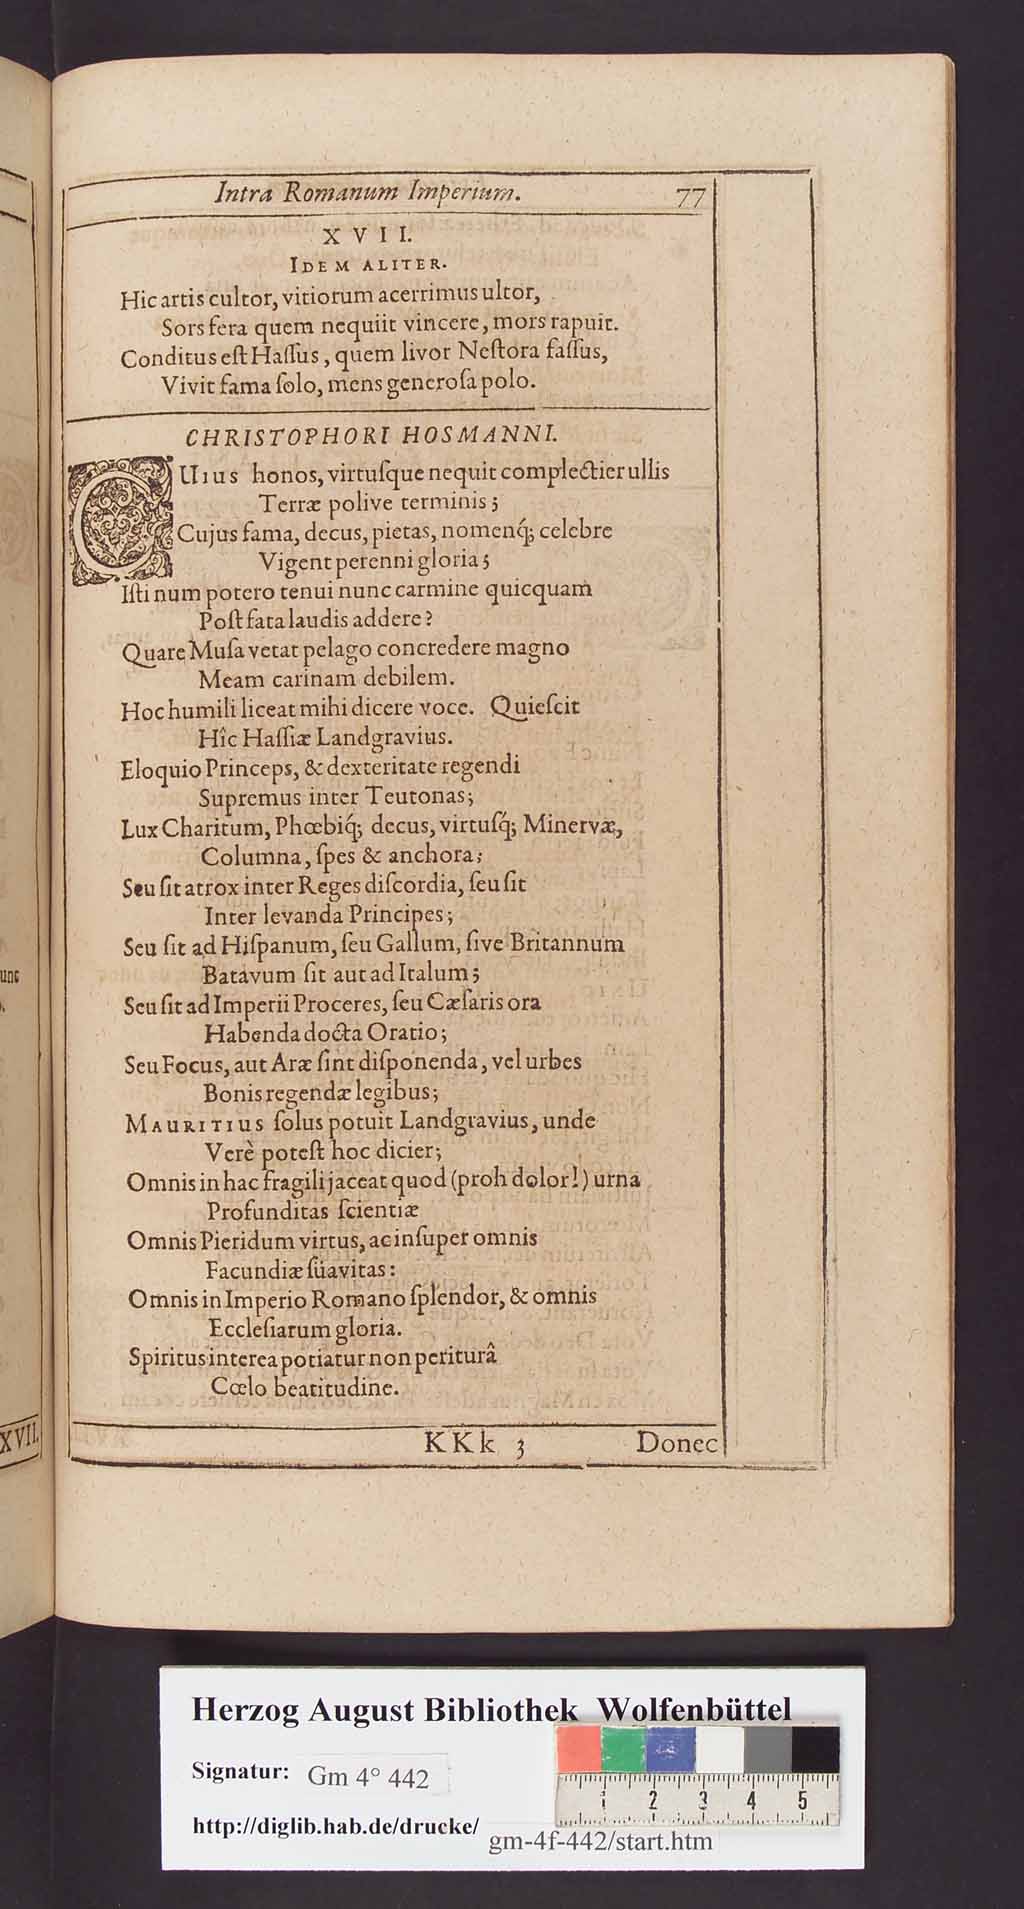 Intra Romanum Imperium. 77
XVII.
IDEM ALITER.
Hic artis cultor, vitiorum acerrimus ultor,
Sors fera quem nequiit vincere, mors rapuit.
Conditus est Hassus, quem livor Nestora fassus,
Vivit fama solo, mens generosa polo.
CHRISTOPHORI HOSMANNI.
CUIUS honos, virtusque nequit complectier ullis
Terræ polive terminis;
Cujus fama, decus, pietas, nomenq́; celebre
Vigent perenni gloria;
Isti num potero tenui nunc carmine quicquam
Post fata laudis addere?
Quare Musa vetat pelago concredere magno
Meam carinam debilem.
Hoc humili liceat mihi dicere voce. Quiescit
Hîc Hassiæ Landgravius.
Eloquio Princeps, & dexteritate regendi
Supremus inter Teutonas;
Lux Charitum, Phœbiq́; decus, virtusq́; Minervæ,
Columna, spes & anchora;
Seu sit atrox inter Reges discordia, seu sit
Inter levanda Principes;
Seu sit ad Hispanum, seu Gallum, sive Britannum
Batavum sit aut ad Italum;
Seu sit ad Imperii Proceres, seu Cæsaris ora
Habenda docta Oratio;
Seu Focus, aut Aræ sint disponenda, vel urbes
Bonis regendæ legibus;
MAURITIUS solus potuit Landgravius, unde
Verè potest hoc dicier;
Omnis in hac fragili jaceat quod (proh dolor!) urna
Profunditas scientiæ
Omnis Pieridum virtus, ac insuper omnis
Facundiæ süavitas:
Omnis in Imperio Romano splendor, & omnis
Ecclesiarum gloria.
Spiritus interea potiatur non periturâ
Cœlo beatitudine.
KKk 3 Donec
unc
XVII.
Herzog August Bibliothek Wolfenbüttel
Signatur: Gm 4° 442
http://diglib.hab.de/drucke/ gm-4f-442/start.htm
1 2 3 4 5